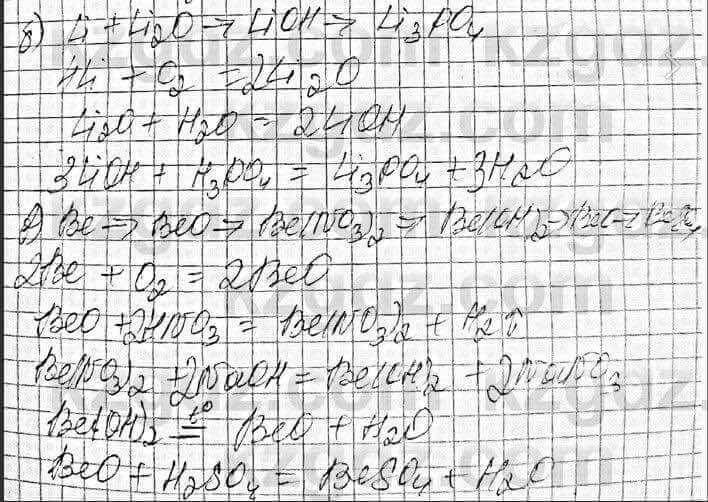 б) Li + Li₂O → LiOH → Li₃PO₄
4Li + O₂ = 2Li₂O
Li₂O + H₂O = 2LiOH
3LiOH + H₃PO₄ = Li₃PO₄ + 3H₂O
Be → BeO → Be(NO₃)₂ → Be(OH)₂ → BeO →
2Be + O₂ = 2BeO
BeO + 2HNO₃ = Be(NO₃)₂ + H₂↑
Be(NO₃)₂ + 2NaOH = Be(OH)₂ + 2NaNO₃
Be(OH)₂ =t°= BeO + H₂O
BeO + H₂SO₄ = BeSO₄ + H₂O